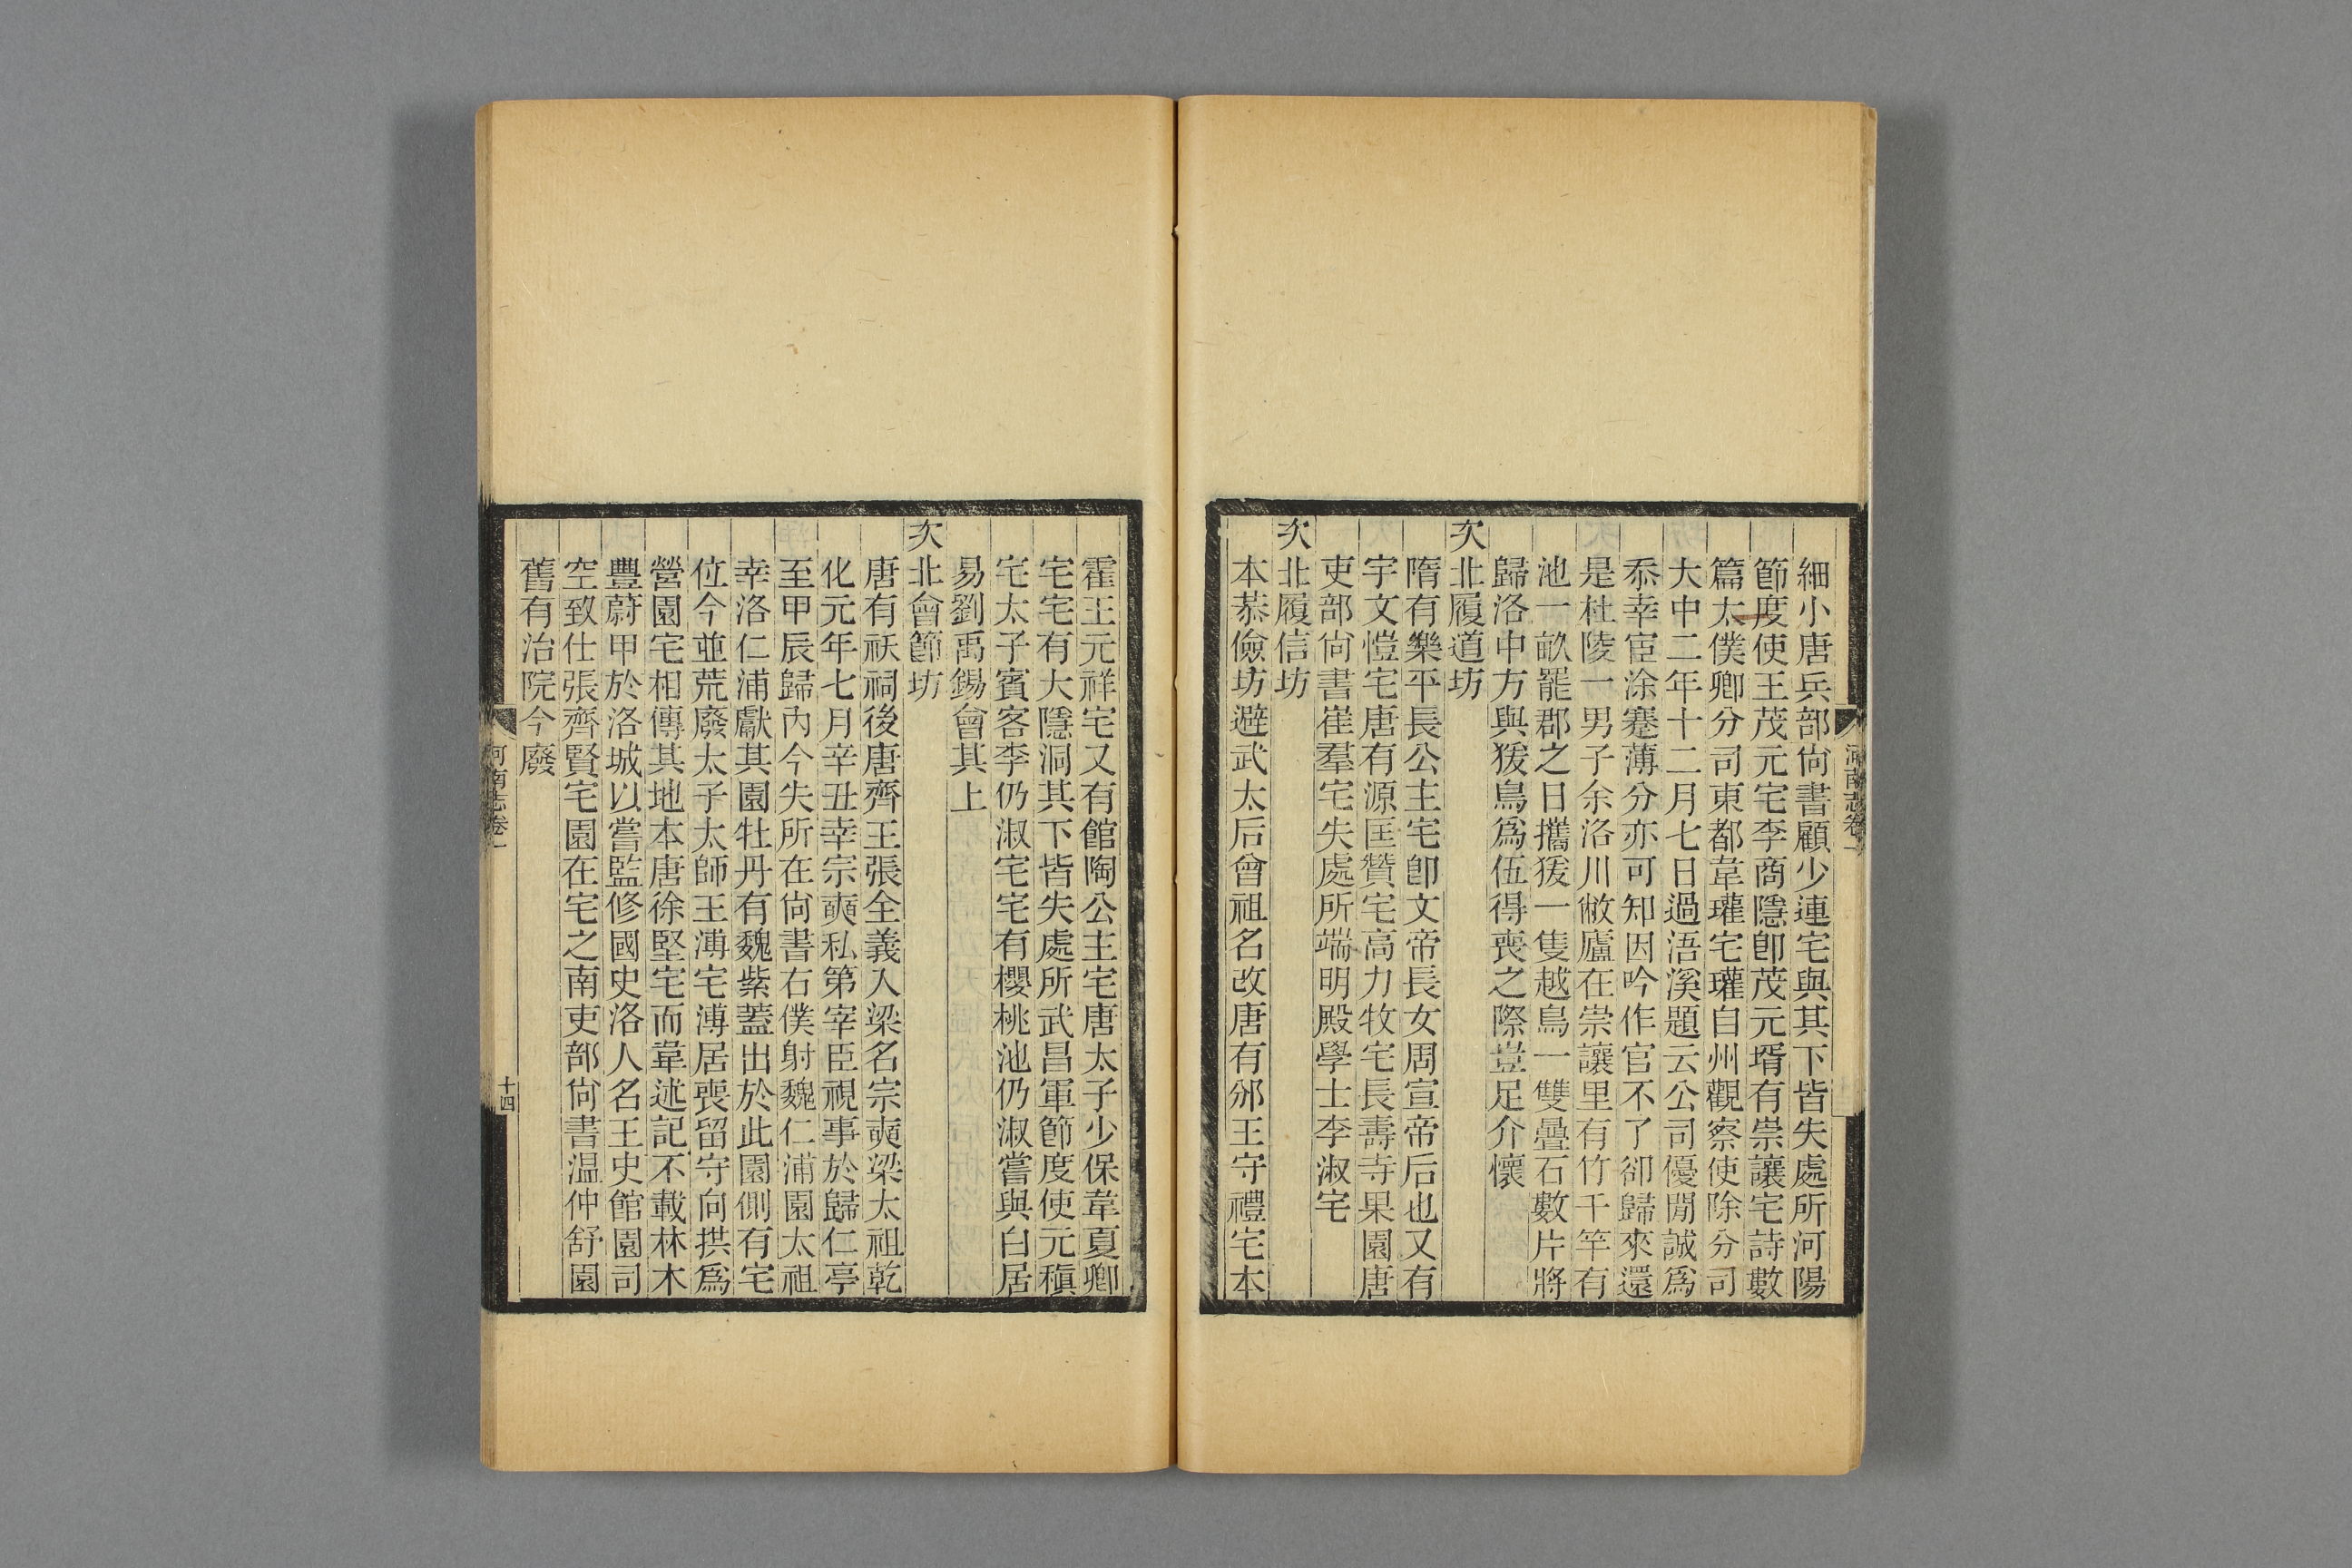 河南志卷一
細小唐兵部尙書顧少連宅與其下皆失處所河陽
節度使王茂元宅李商隱卽茂元壻有崇讓宅詩數
篇太僕卿分司東都韋瓘宅瓘自州觀察使除分司
大中二年十二月七日過浯溪題云公司優閒誠爲
忝幸宦涂蹇薄分亦可知因吟作官不了卻歸來還
是杜陵一男子余洛川敝廬在崇讓里有竹千竿有
池一畝罷郡之日攜猨一隻越鳥一雙疊石數片將
歸洛中方與猨鳥爲伍得喪之際豈足介懷
次北履道坊
隋有樂平長公主宅卽文帝長女周宣帝后也又有
宇文愷宅唐有源匡贊宅高力牧宅長壽寺果園唐
吏部尙書崔羣宅失處所端明殿學士李淑宅
次北履信坊
本恭儉坊避武太后曾祖名改唐有邠王守禮宅本
霍王元祥宅又有館陶公主宅唐太子少保韋夏卿
宅宅有大隱洞其下皆失處所武昌軍節度使元稹
宅太子賓客李仍淑宅宅有櫻桃池仍淑嘗與白居
易劉禹錫會其上
次北會節坊
唐有祅祠後唐齊王張全義入梁名宗奭梁太祖乾
化元年七月辛丑幸宗奭私第宰臣視事於歸仁亭
至甲辰歸內今失所在尙書右僕射魏仁浦園太祖
幸洛仁浦獻其園牡丹有魏紫蓋出於此園側有宅
位今並荒廢太子太師王溥宅溥居喪留守向拱爲
營園宅相傳其地本唐徐堅宅而韋述記不載林木
豐蔚甲於洛城以嘗監修國史洛人名王史館園司
空致仕張齊賢宅園在宅之南吏部尙書溫仲舒園
舊有治院今廢
河南志卷一
十四